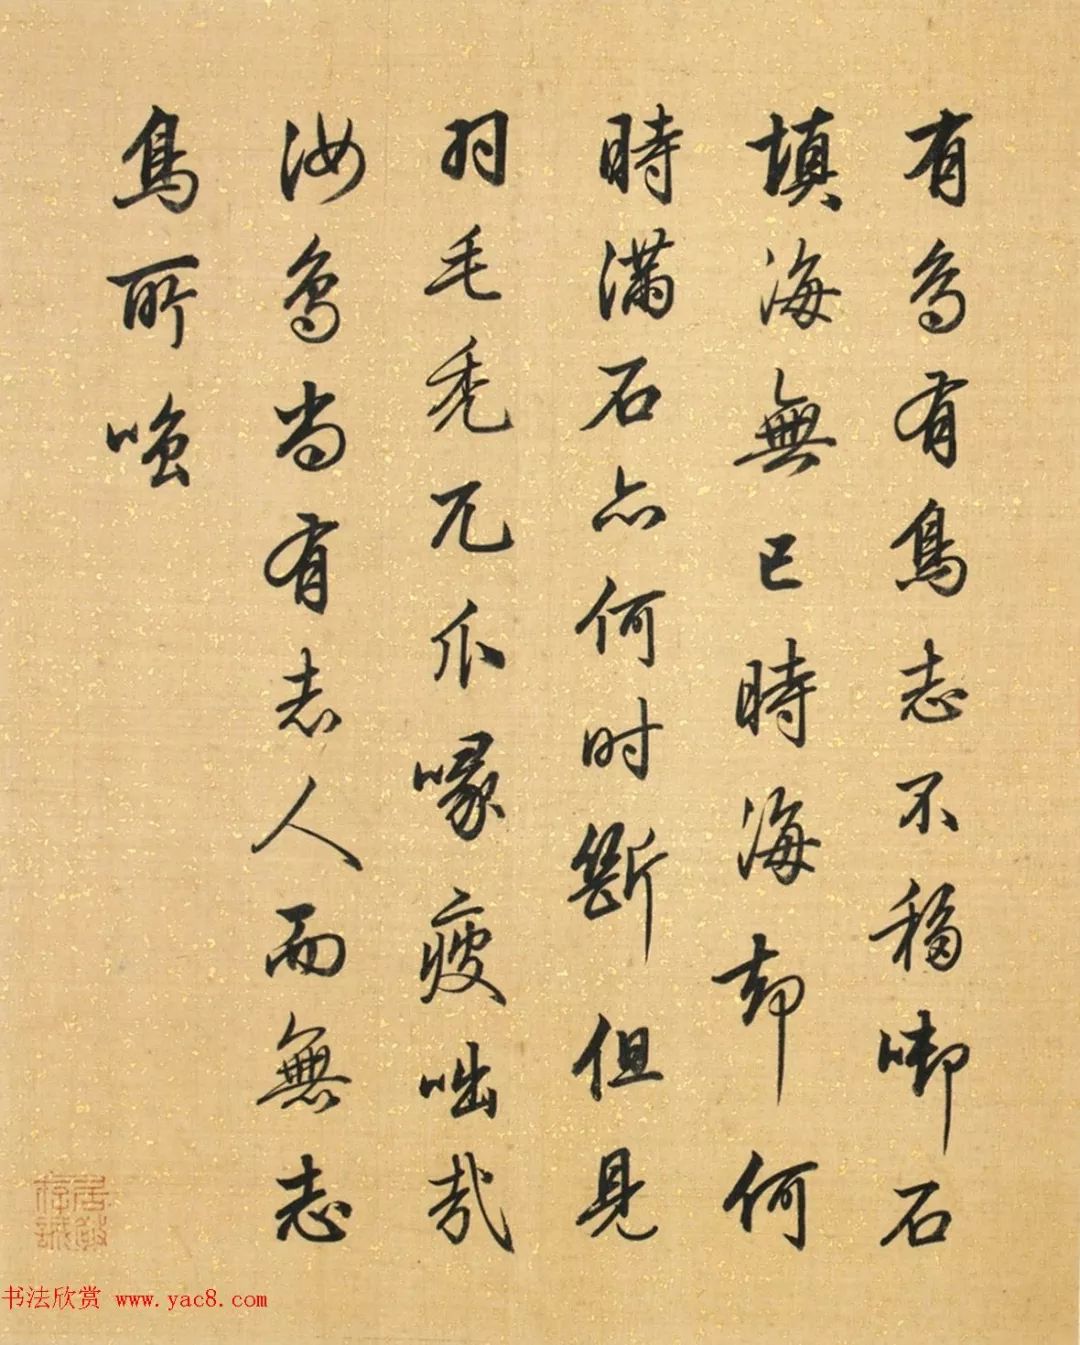 有鳥有鳥志不移啣石
填海無已時海却何
時滿石亦何时斷但見
羽毛秃兀爪喙疲咄哉
汝鳥尚有志人而無志
鳥所嗤
居敬存誠
书法欣赏 www.yac8.com